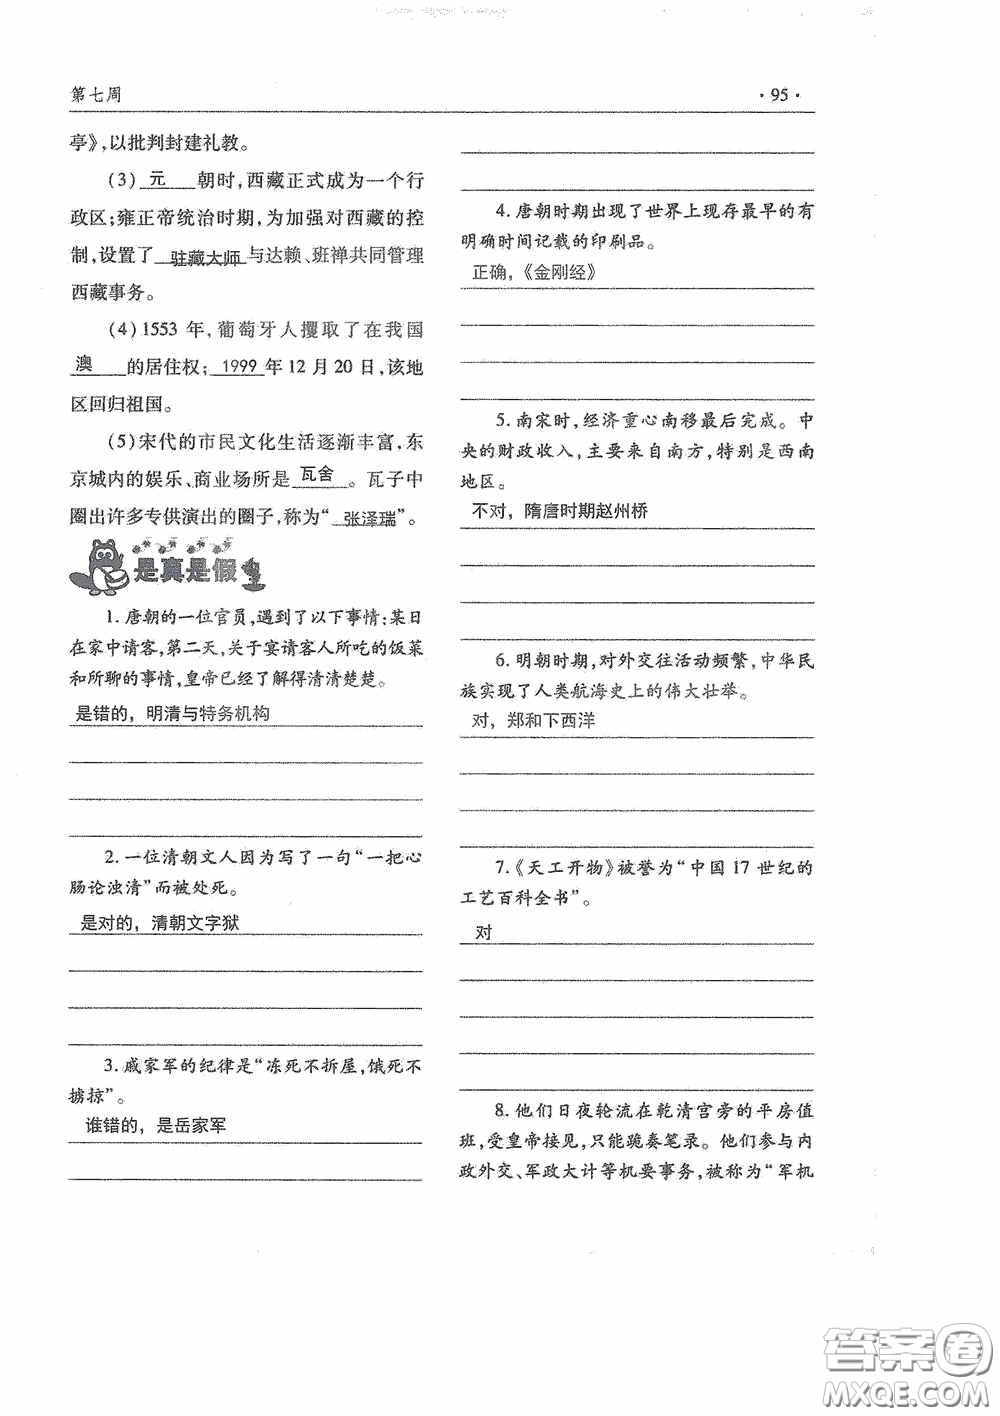 第七周
·95·
亭》,以批判封建礼教。
(3) 元 朝时,西藏正式成为一个行
政区;雍正帝统治时期,为加强对西藏的控
制,设置了 驻藏大师 与达赖、班禅共同管理
西藏事务。
(4) 1553 年,葡萄牙人攫取了在我国
澳 的居住权; 1999 年 12 月 20 日,该地
区回归祖国。
(5)宋代的市民文化生活逐渐丰富,东
京城内的娱乐、商业场所是 瓦舍 。瓦子中
圈出许多专供演出的圈子,称为“ 张泽瑞 ”。
是真是假
1. 唐朝的一位官员,遇到了以下事情:某日
在家中请客,第二天,关于宴请客人所吃的饭菜
和所聊的事情,皇帝已经了解得清清楚楚。
是错的，明清与特务机构
2. 一位清朝文人因为写了一句“一把心
肠论浊清”而被处死。
是对的，清朝文字狱
3. 戚家军的纪律是“冻死不拆屋,饿死不
掳掠”。
谁错的，是岳家军
4. 唐朝时期出现了世界上现存最早的有
明确时间记载的印刷品。
正确，《金刚经》
5. 南宋时,经济重心南移最后完成。中
央的财政收入,主要来自南方,特别是西南
地区。
不对，隋唐时期赵州桥
6. 明朝时期,对外交往活动频繁,中华民
族实现了人类航海史上的伟大壮举。
对，郑和下西洋
7.《天工开物》被誉为“中国 17 世纪的
工艺百科全书”。
对
8. 他们日夜轮流在乾清宫旁的平房值
班,受皇帝接见,只能跪奏笔录。他们参与内
政外交、军政大计等机要事务,被称为“军机
答案圈
MXQE.COM